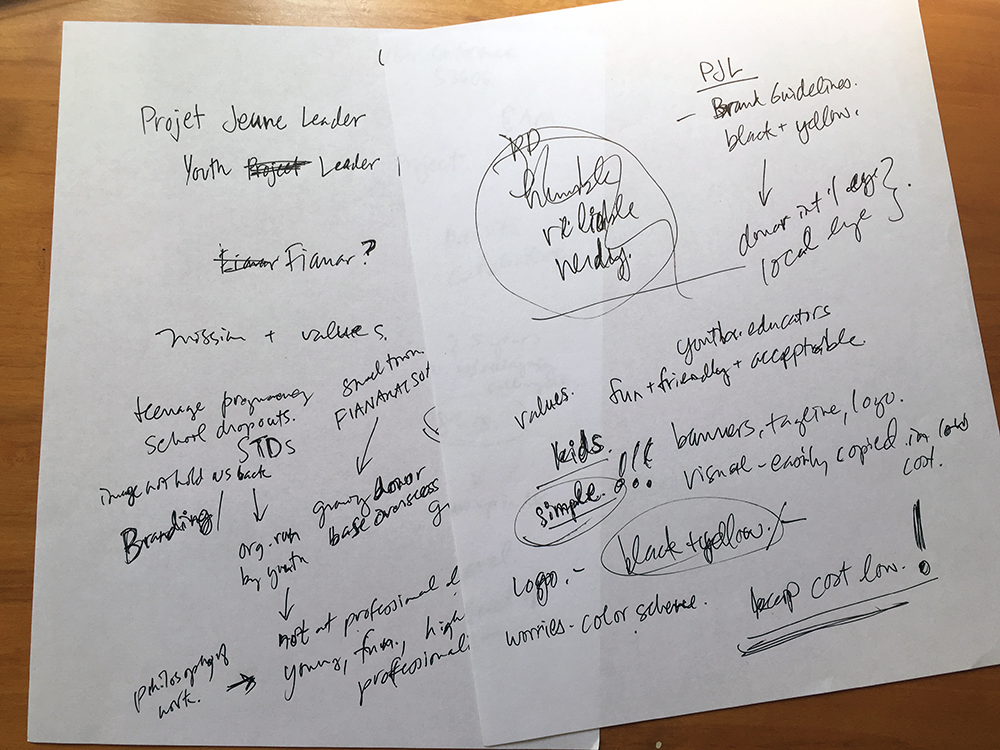 Projet Jeune Leader
Youth Project Leader
Fianar Fianar?
mission + values.
teenage pregnancy
school dropouts.
STDs
small town
FIANARANTSOA
image not hold us back
Branding
org. run
by youth
growing donor
base overseas
not at professional
young, fun, high
professionali
philosophy of
work.
PJL
- Brand Guidelines.
black + yellow.
donor int'l eye
local eye
humble
reliable
nerdy.
youth educators
fun + friendly + acceptable.
values.
kids.
simple. !!!
banners, tagline, logo.
visual - easily copied in low
cost.
logo. -
black + yellow. -
worries - color scheme.
keep cost low. !